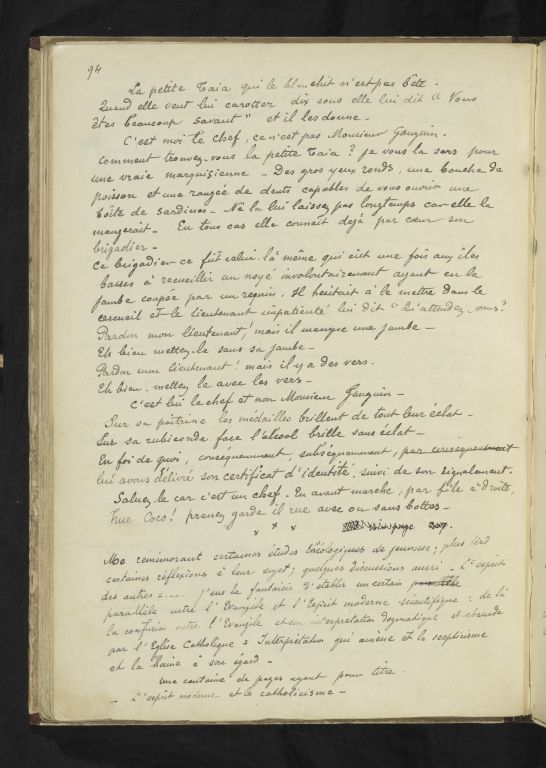 94
La petite Taia qui le blanchit n'est pas bête.
Quand elle veut lui carotter dix sous elle lui dit "Vous
êtes beaucoup savant" et il les donne _
C'est moi le chef, ce n'est pas Monsieur Gauguin.
Comment trouvez-vous la petite Taia? je vous la sers pour
une vraie marquisienne _ Des gros yeux ronds, une bouche de
poisson et une rangée de dents capables de vous ouvrir une
boîte de sardines _ Ne la lui laissez pas longtemps car elle la
mangerait _ En tous cas elle connait dejà par cœur son
brigadier _
Ce brigadier ce fût celui-là même qui eût une fois aux îles
basses à recueillir un noyé involontairement ayant eu la
jambe coupée par un requin. Il hesitait à le mettre dans le
cercueil et le lieutenant impatienté lui dit "Qu'attendez-vous?
Pardon mon lieutenant! mais il manque une jambe _
Eh bien mettez-le sans sa jambe _
Pardon mon lieutenant! mais il y a des vers.
Eh bien. mettez le avec les vers _
C'est lui le chef et non Monsieur Gauguin _
Sur sa poitrine les médailles brillent de tout leur éclat _
Sur sa rubiconde face l'alcool brille sans éclat _
En foi de quoi, consequemment, subséquemment, par consequemment
lui avons délivré son certificat d'identité suivi de son signalement.
Saluez le car c'est un chef. En avant marche, par file à droite,
hue Coco! prenez garde il rue avec ou sans bottes _
x x x
Me remémorant certaines études théologiques de jeunesse; plus tard
certaines réflexions à leur sujet; quelques discussions aussi _ L'esprit
des autres _ ...... j'eus la fantaisie d'établir un certain parallèle
parallèle entre l'Evangile et l'Esprit moderne scientifique: de là
la confusion entre l'Evangile et son interprétation dogmatique et absurde
par l'Eglise Catholique; Interprétation qui amène et le scepticisme
et la haine à son égard _
une centaine de pages ayant pour titre.
_ L'esprit moderne et le catholicisme _